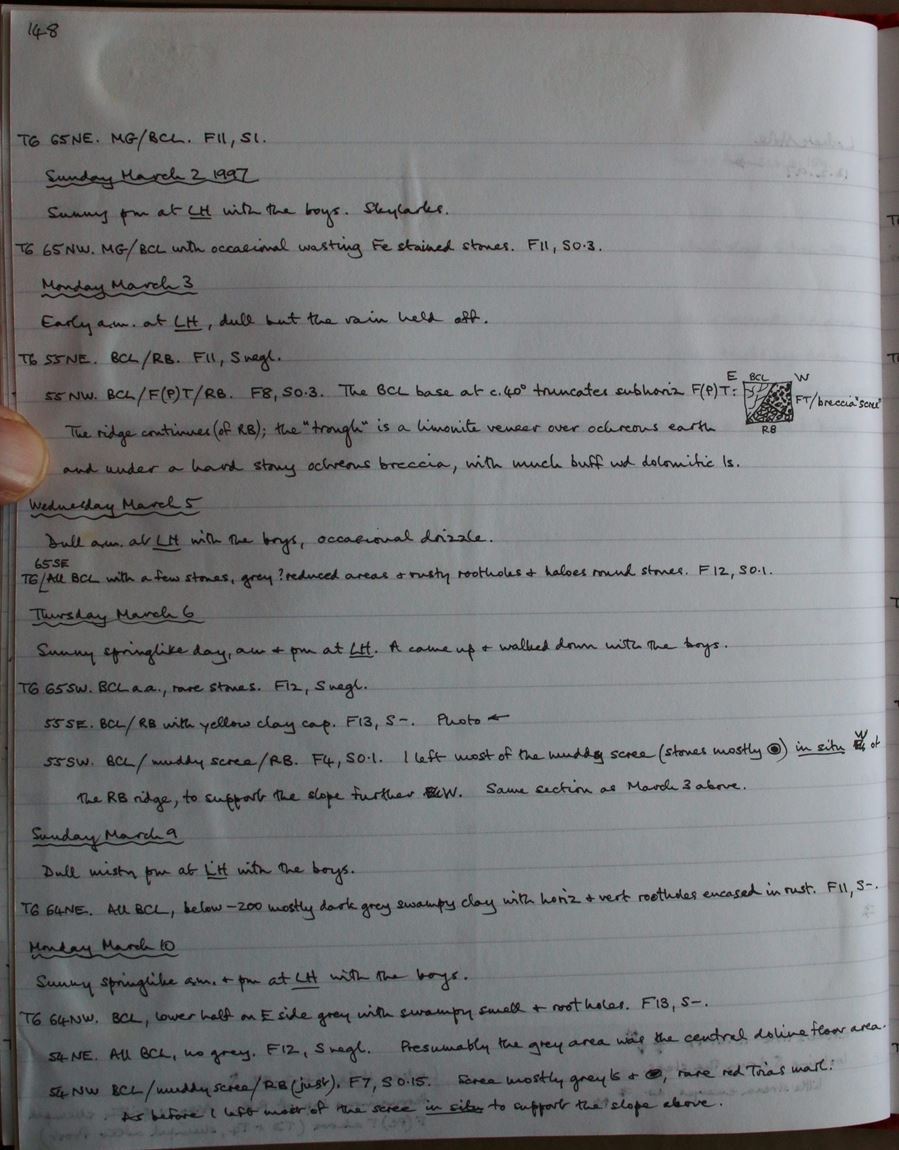 148
T6 65NE. MG/BCL. F11, S1.
Sunday March 2 1997
Sunny pm at LH with the boys. Skylarks.
T6 65NW. MG/BCL with occasional wasting Fe stained stones. F11, S0.3.
Monday March 3
Early a.m. at LH, dull but the rain held off.
T6 55NE. BCL/RB. F11, S negl.
55NW. BCL/F(P)T/RB. F8, S0.3. The BCL base at c.40° truncates subhoriz F(P)T:
E BCL W
FT/breccia "scree"
RB
The ridge continues (of RB); the "trough" is a limonite veneer over ochreous earth
and under a hard stony ochreous breccia, with much buff wd dolomitic ls.
Wednesday March 5
Dull a.m. at LH with the boys, occasional drizzle.
65SE
T6/All BCL with a few stones, grey ?reduced areas + rusty rootholes + haloes round stones. F12, S0.1.
Thursday March 6
Sunny springlike day, am + pm at LH. A came up + walked down with the boys.
T6 65SW. BCL a.a., rare stones. F12, S negl.
55SE. BCL/RB with yellow clay cap. F13, S-. Photo ←
55SW. BCL/muddy scree/RB. F4, S0.1. I left most of the muddy scree (stones mostly ) in situ W of
the RB ridge, to support the slope further W. Same section as March 3 above.
Sunday March 9
Dull misty pm at LH with the boys.
T6 64NE. All BCL, below -200 mostly dark grey swampy clay with horiz + vert rootholes encased in rust. F11, S-.
Monday March 10
Sunny springlike a.m. + pm at LH with the boys.
T6 64NW. BCL, lower half on E side grey with swampy smell + root holes. F13, S-.
54NE. All BCL, no grey. F12, S negl. Presumably the grey area was the central doline floor area.
54NW BCL/muddy scree/RB (just). F7, S0.15. Scree mostly grey ls + , rare red Trias marl.
As before I left most of the scree in situ to support the slope above.